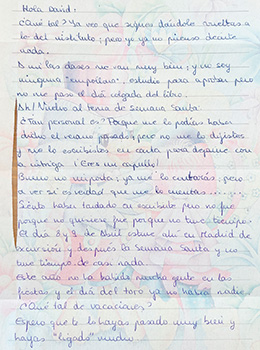 Hola David.
¿Qué tal? Ya veo que sigues dándole vueltas a
lo del instituto; pero yo ya no pienso decirte
nada.
A mi las clases me van muy bien; y no soy
ninguna "empollona", estudio para aprobar pero
no me paso el día colgada del libro.
Ok! Vuelvo al tema de Semana Santa.
¿Tan personal es? Porque me lo podías haber
dicho el verano pasado; pero no me lo dijiste
y me lo escribiste en carta para dejarme con
la intriga ¡Eres un capullo!
Bueno no importa; ya me lo contarás; pero
a ver si es verdad que me lo cuentas.....
Siento haber tardado en escribirte pero no fue
porque no quisiera fue porque no tuve tiempo.
El día 8 y 9 de Abril estuve allí en Madrid de
excursión y después la Semana Santa y no
tuve tiempo de casi nada.
Este año no ha habido mucha gente en las
fiestas y el día del toro ya no había nadie.
¿Qué tal de vacaciones?
Espero que te lo hayas pasado muy bien y
hayas "ligado" mucho